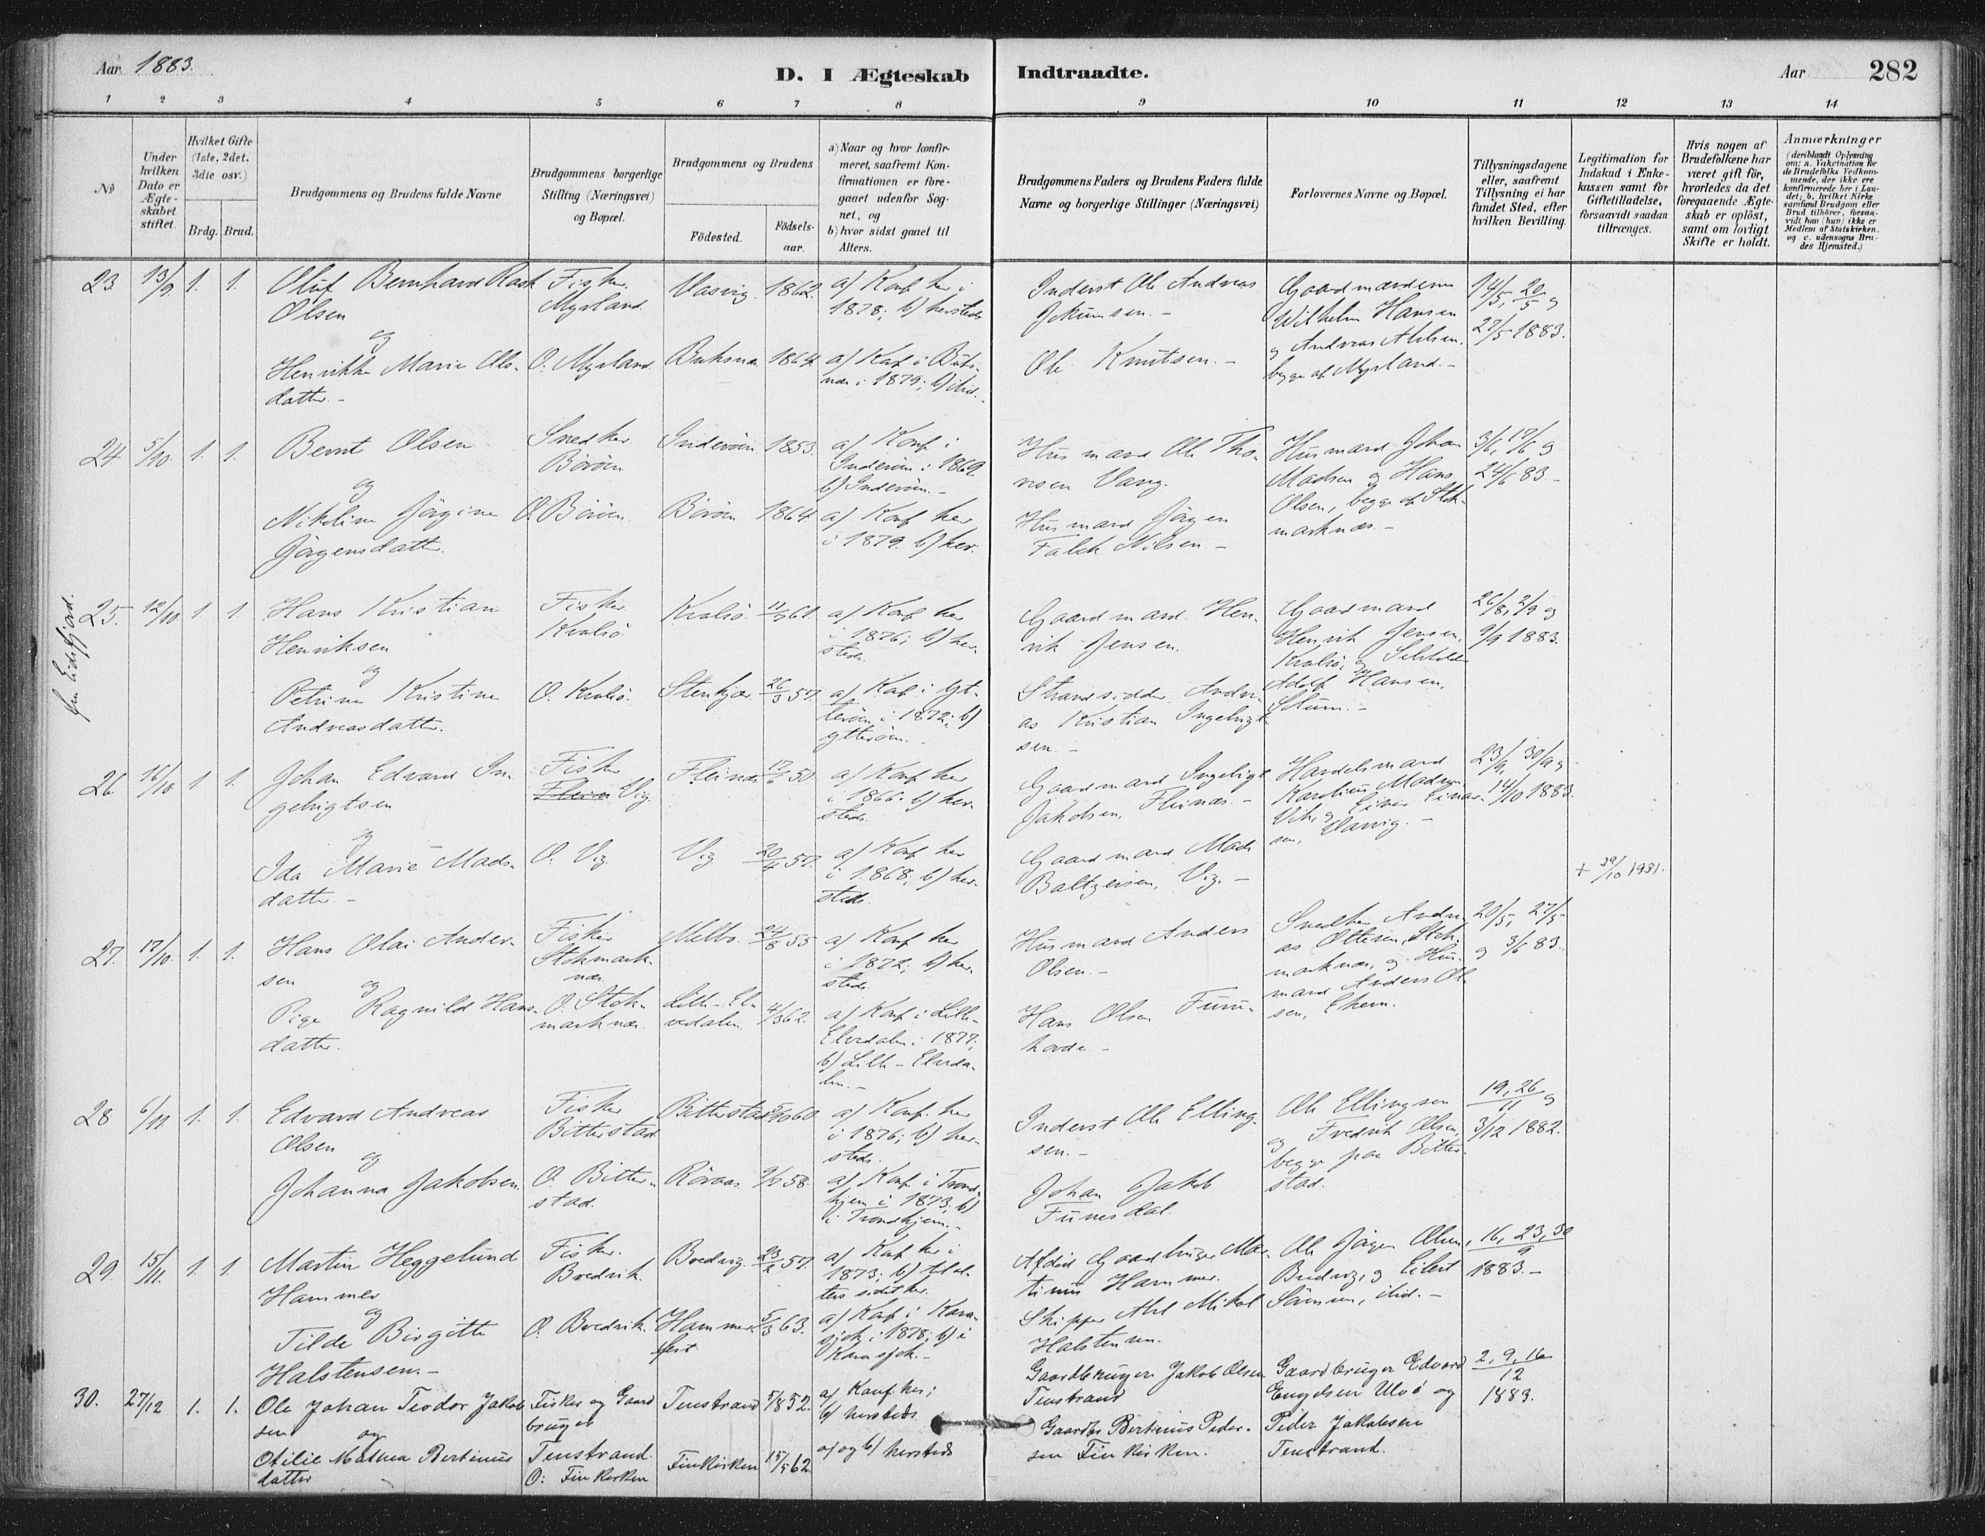 Aar 1883.
D. I Ægteskab Indtraadte.
Aar 282
1 2 3 4 5 6 7 8 9 10 11 12 13 14
No
Under hvilken Dato er Ægteskabet stiftet.
Hvilket Gifte (1ste, 2det, 3die osv.)
Brdg. Brud.
Brudgommens og Brudens fulde Navne
Brudgommens borgerlige Stilling (Næringsvei) og Bopæl.
Brudgommens og Brudens
Fødested.
Fødsels-aar.
a) Naar og hvor konfirmeret, saafremt Konfirmationen er foregaaet udenfor Sognet, og
b) hvor sidst gaaet til Alters.
Brudgommens Faders og Brudens Faders fulde Navne og borgerlige Stillinger (Næringsvei)
Forlovernes Navne og Bopæl.
Tillysningsdagene eller, saafremt Tillysning ei har fundet Sted, efter hvilken Bevilling.
Legitimation for Indskud i Enkekassen samt for Giftetilladelse, forsaavidt saadan tiltrænges.
Hvis nogen af Brudefolkene har været gift før, hvorledes da det foregaaende Ægteskab er opløst, samt om lovligt Skifte er holdt.
Anmærkninger
(deriblandt Oplysning om: a. Vakcination for de Brudefolks Vedkommende, der ikke ere konfirmerede her i Landet; b. hvilket Kirkesamfund Brudgom eller Brud tilhører, forsaavidt han (hun) ikke er Medlem af Statskirken, og c. udensogns Brudes Hjemsted.)
23 13/9 1. 1. Oluf Bernhard Rask Olsen
Fisker. Myrland. Vasvig. 1862. a) Konf. her i 1878; b) hersteds
Inderst Ole Andreas Jokumsen. -
Gaardmændene Wilhelm Hansen og Andreas Ahlsen, begge af Myrland. -
14/5, 20/5 og 27/5 1883.
og
Henrikke Marie Olsdatter. -
O. Myrland. Buksnæs 1864 a) Konf. i Buksnæs i 1879; b) ibid. -
Ole Knutsen. -
24 5/10. 1. 1. Bernt Olsen
Snedker Börøen Inderöen 1853. a) Konf. i Inderöen i 1869. b) Inderöen. -
Husmand Ole Thonesen Vang.
Husmand Johan Madsen og Hans Olsen, begge af Stokmarknæs. -
3/6, 17/6 og 24/6 83. -
og
Nikoline Jørgine Jørgensdatter.
O. Börøen. Börøen 1864 a) Konf. her i 1879. b) her.
Husmand Jørgen Falch Nilsen. -
fra Eidsfjord.
25. 12/10 1. 1. Hans Kristian Henriksen
Fisker. Kvalsö. Kvalsö. 11/3 61. a) Konf. her i 1876; b) hersteds.
Gaardmand. Henrik Jensen.
Gaardmand Henrik Jensen, Kvalsö, og Selveier Adolf Hansen,
26/8, 2/9 og 9/9 1883.
og
Petrine Kristine Andreasdatter.
O. Kvalsö. Stenkjær 26/3 57. a) Konf. i Ytterøen, i 1872; b) Ytterøen.
Strandsidder Andreas Kristian Ingebrigtsen. -
26 16/10 1 1. Johan Edvard Ingebrigtsen
Fisker Vig. Fleinæs 17/6 51 a) Konf. her i 1866. b) hersteds.
Gaardmand Ingebrigt Jakobsen, Fleinæs. -
Handelsmand Karolius Madsen Vik, og Einar Einarsen, Vasvig. -
23/9, 30/9 og 14/10 1883.
og
Ida Marie Madsdatter -
O. Vig Vig 20/4 51. a) Konf. her i 1868; b) hersteds.
Gaardmand Mads Baltzersen, Vig. -
+ 29/10 1931.
27. 17/10 1. 1. Hans Olai Andersen
Fisker Stokmarknæs Melbo. 24/8 55 a) Konf. her i 1872; b) hersteds.
Husmand Anders Olsen. -
Snedker Andreas Ottesen, Stokmarknæs, og Husmand Anders Olsen, Ekern.
20/5, 27/5 og 3/6 83.
og
Pige Ragnild Hansdatter.
O. Stokmarknæs. Lille-Elvedalen 4/3 62. a) Konf. i Lille-Elvedalen i 1877; b) Lille-Elvedalen. -
Hans Olsen Furuhovde. -
28 6/11 1. 1. Edvard Andreas Olsen
Fisker Bitterstad Bitterstad 5/10 60 a) Konf. her i 1876; b) hersteds.
Inderst Ole Ellingsen. -
Ole Ellingsen og Fredrik Olsen, begge paa Bitterstad.
19, 26/11 og 3/12 1882.
og
Johanna Jakobsen.
O. Bitterstad. Röraas 58. a) Konf. i Trondhjem i 1873; b) i Trondhjem. -
Johan Jakob Funesdal.
29. 15/11. 1. 1. Martin Heggelund Hammer
Fisker. Bredvik. Bredvig. 23/2 57. a) Konf. her i 1873; b) Alters sidst her.
Afdød Gaardbruger Martinus Hammer.
Ole Jørgen Olsen, Bredvig, og Eilert Sörensen, ibid. -
16, 23, 30/9 1883. -
og
Tilde Birgitte Halstensen. -
O. Bredvik. Hammerfest 5/3 63. a) Konf. i Karasjok, i 1878; b) i Karasjok. -
Skipper Abel Mikal Halstensen.
30. 27/12 1. 1. Ole Johan Teodor Jakobsen
Fisker og Gaardbruger Tenstrand. Tenstrand 5/8 52. a) Konf. her; b) hersteds
Gaardbruger Jakob Olsen Tenstrand
Gaardbruger Edvard Engelsen Ulvö og Peder Jakobsen Tenstrand.
2, 9, 16/12 1883.
og
Otilie Mathea Bertinusdatter
O: Finkirken Finkirken 15/5 62. a) og b) hersteds
Gaardbr Bertinus Pedersen Finkirken.